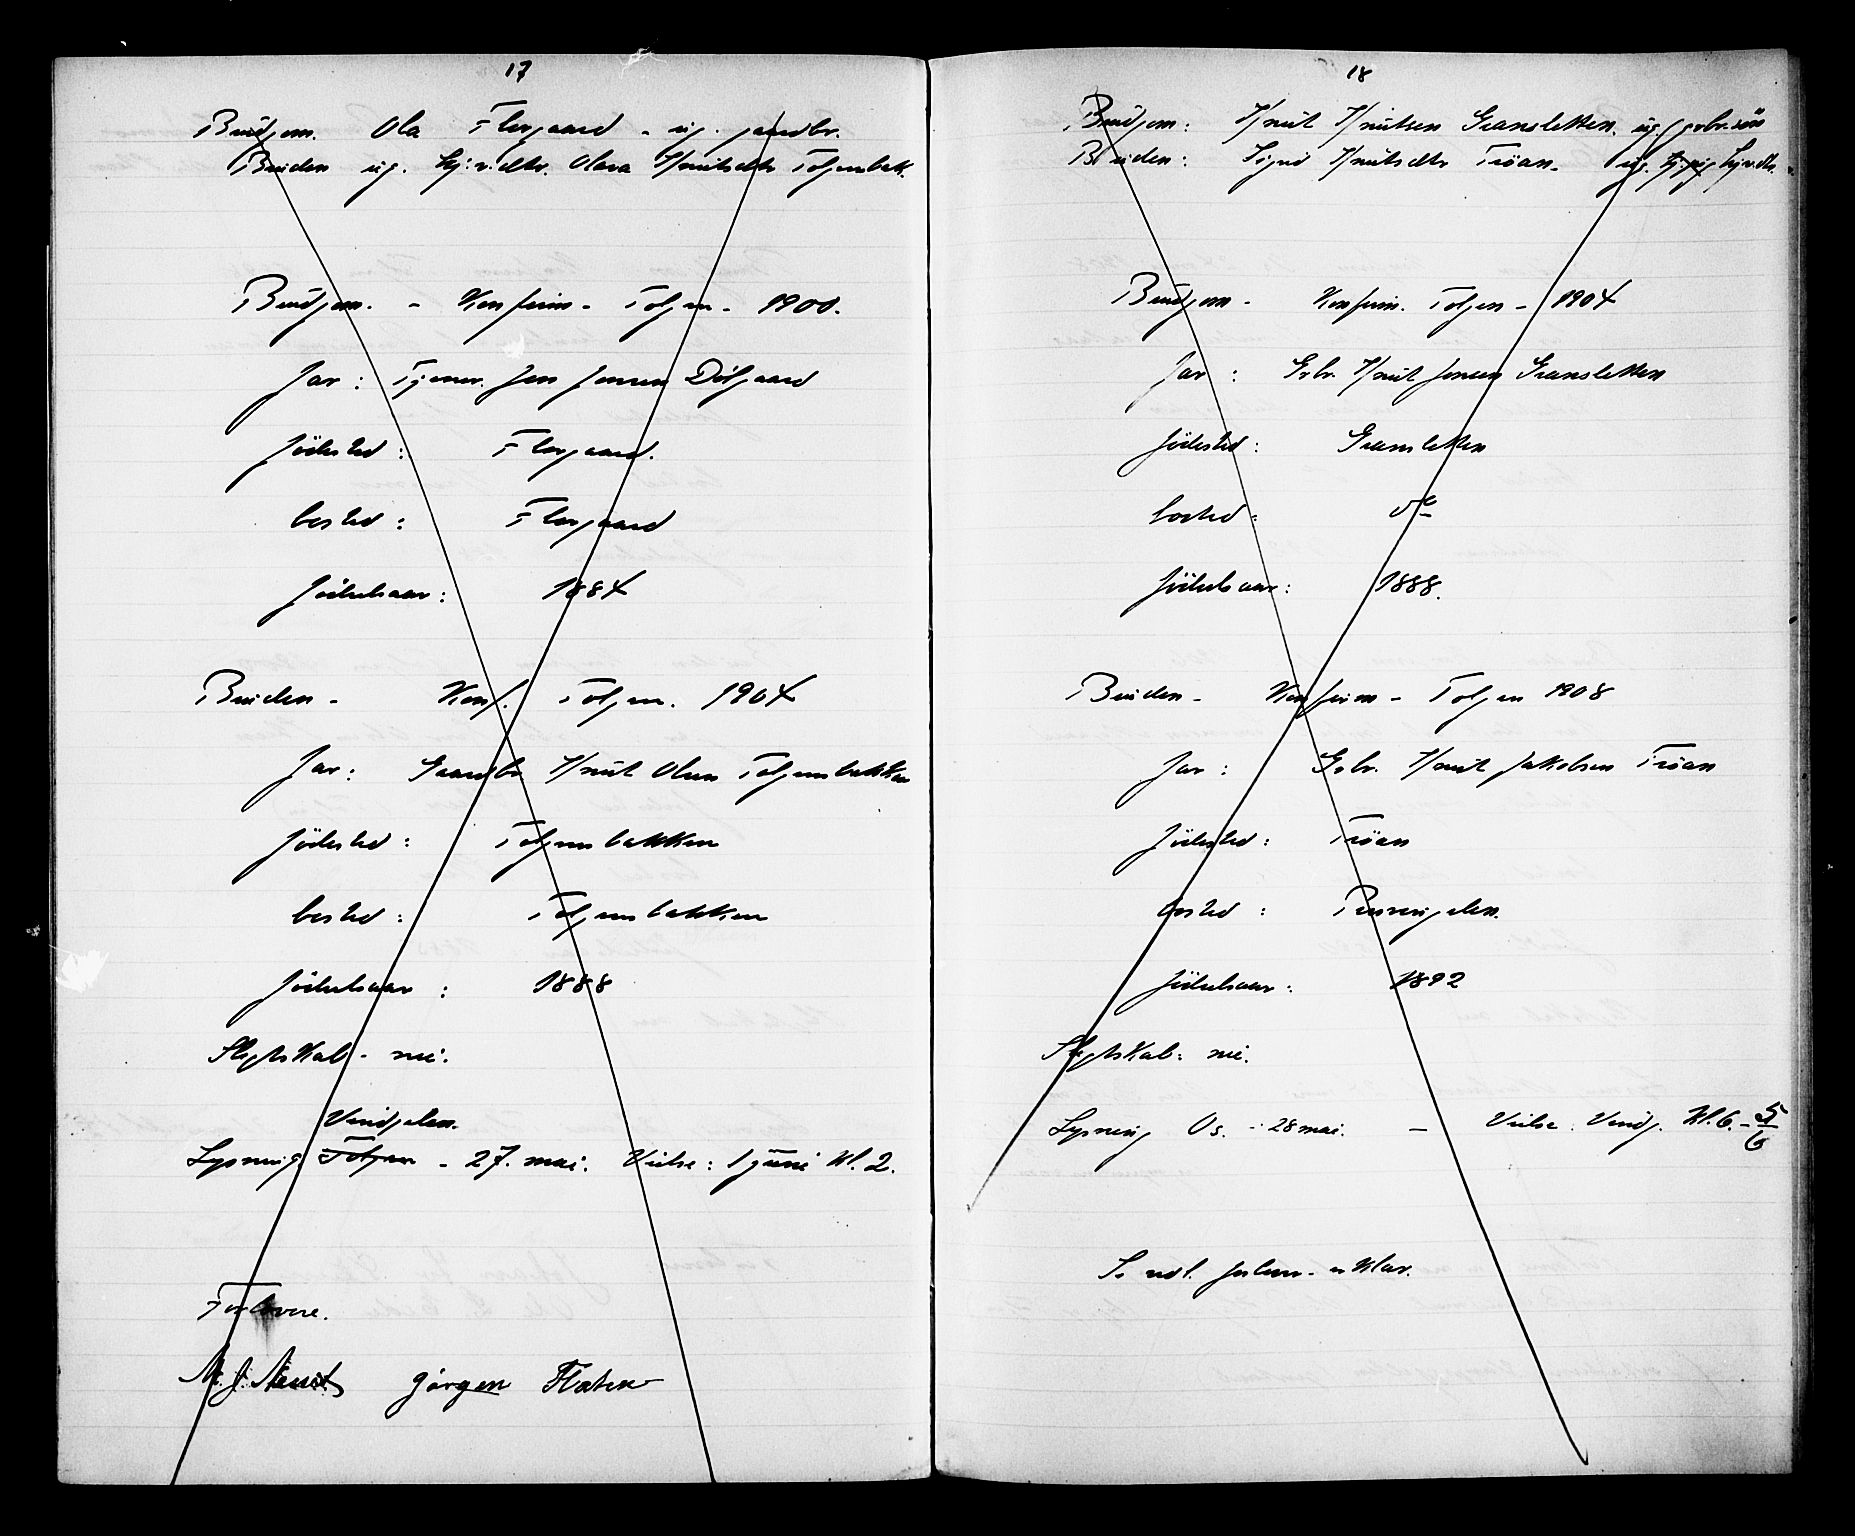 17
Brudgom. Ola Flergaard - ug. gaardbr.
Bruden ug. hj.v.dtr. Olava Knutsdtr Tolgensbak.
Brudgom. - Konfirm - Tolgen - 1900.
far : Tjener. Jon Jonsen Dølgaard
födested : Flergaard.
bosted : Flergaard
födselsaar : 1884
Bruden - Konf. Tolgen. 1904
far : Gaardbr Knut Olsen Tolgensbakken
födested : Tolgensbakken
bosted : Tolgensbakken
födselsaar : 1888
Slegtskab - nei.
Vingelen.
Lysning Tolgen - 27. mai. Vielse : 1 juni kl. 2.
Forlovere.
Jörgen Flaten
18
Brudgom : Knut Knutsen Gransletten. ug. grbr.sön
Bruden : Sigrid Knutsdtr Tröan - ug. hj.v.dtr.
Brudgom - Konfirm. Tolgen - 1904
far : Grbr. Knut Jonsen Gransletten
födested : Gransletten
bosted : do
födselsaar : 1888.
Bruden - Konfirm - Tolgen 1908
far : Grbr. Knut Jakobsen Tröan
födested : Tröan
bosted :
födselsaar : 1892
Slegtskab : nei.
Lysning Os. - 28 mai. - Vielse : Vingl. Kl. 6. - 5/6